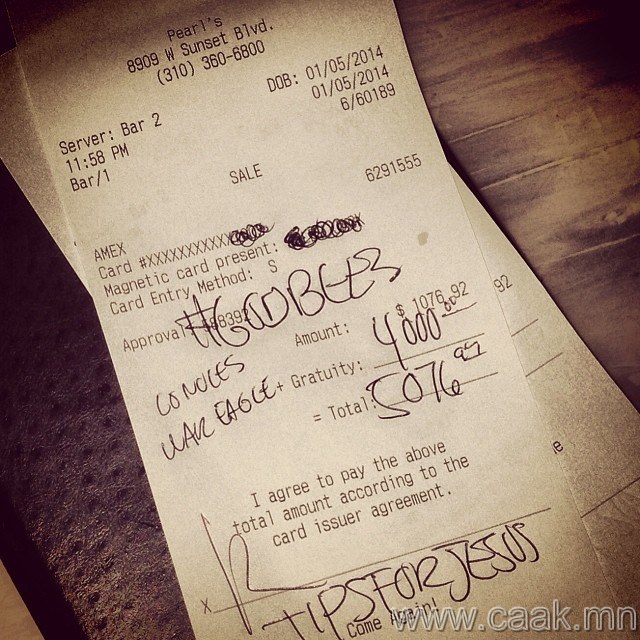 Pearl's
8909 W Sunset Blvd.
(310) 360-6800
DOB: 01/05/2014
Server: Bar 2
01/05/2014
11:58 PM
6/60189
Bar/1
SALE
6291555
AMEX
Card #XXXXXXXXXXX
Magnetic card present:
Card Entry Method: S
Approval
#GODBLESS
Amount: $ 1076.92
GO NOLES
+ Gratuity: 4000.00
WAR EAGLE
= Total: 5076.92
92
I agree to pay the above
total amount according to the
card issuer agreement.
e
X
TIPSFORJESUS
Come Again!
www.caak.mn